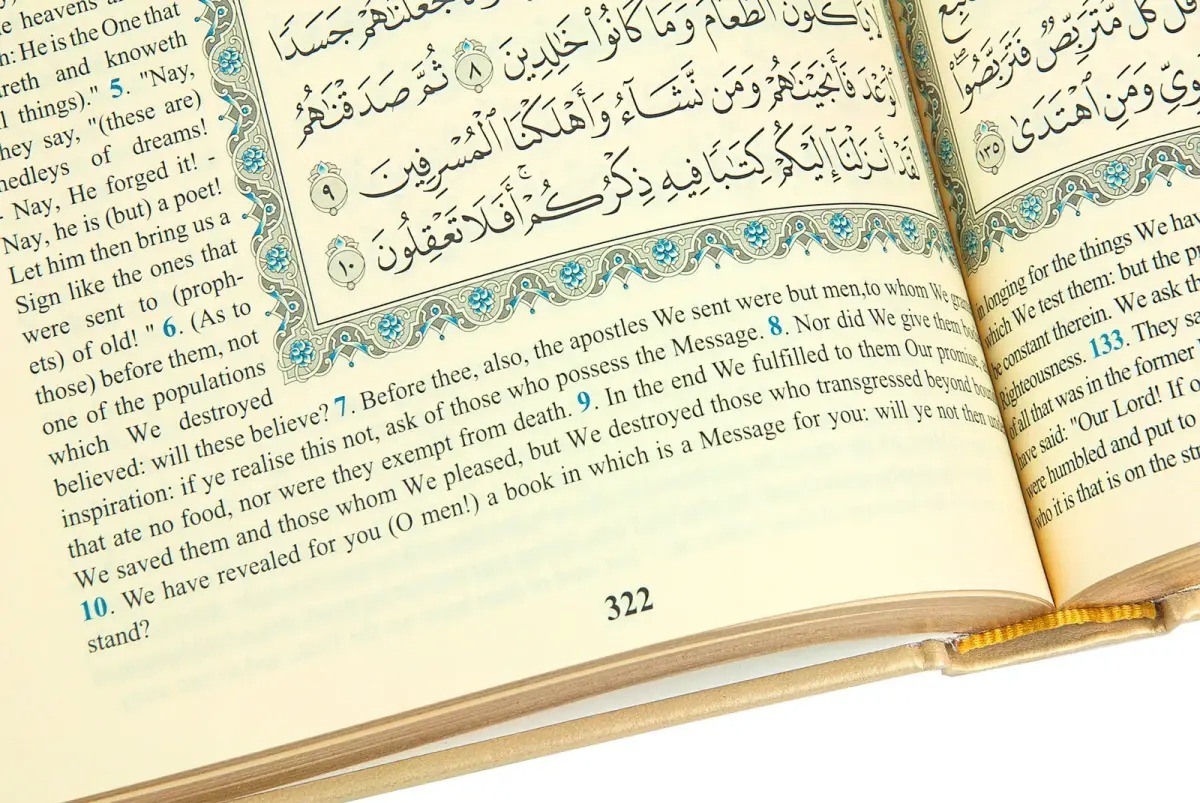 لَّا يَأْكُلُونَ ٱلطَّعَامَ وَمَا كَانُوا۟ خَٰلِدِينَ ٨ ثُمَّ صَدَقْنَٰهُمُ
ٱلْوَعْدَ فَأَنجَيْنَٰهُمْ وَمَن نَّشَآءُ وَأَهْلَكْنَا ٱلْمُسْرِفِينَ ٩
لَقَدْ أَنزَلْنَآ إِلَيْكُمْ كِتَٰبًا فِيهِ ذِكْرُكُمْ أَفَلَا تَعْقِلُونَ ١٠
heavens
He is the One that
and knoweth
things)." 5. "Nay,
they say, "(these are)
medleys of dreams! -
- Nay, He forged it! -
Nay, he is (but) a poet!
Let him then bring us a
Sign like the ones that
were sent to (proph-
ets) of old! " 6. (As to
those) before them, not
one of the populations
which We destroyed
believed: will these believe? 7. Before thee, also, the apostles We sent were but men,to whom We
inspiration: if ye realise this not, ask of those who possess the Message. 8. Nor did We give them
that ate no food, nor were they exempt from death. 9. In the end We fulfilled to them Our promise,
We saved them and those whom We pleased, but We destroyed those who transgressed beyond
10. We have revealed for you (O men!) a book in which is a Message for you: will ye not then
stand?
322
كُلٌّ مُّتَرَبِّصٌ فَتَرَبَّصُوا۟
وَمَنِ ٱهْتَدَىٰ ١٣٥
longing for the things We
which We test them: but the
be constant therein. We ask
Righteousness. 133. They
of all that was in the former
have said: "Our Lord! If
were humbled and put to
who it is that is on the